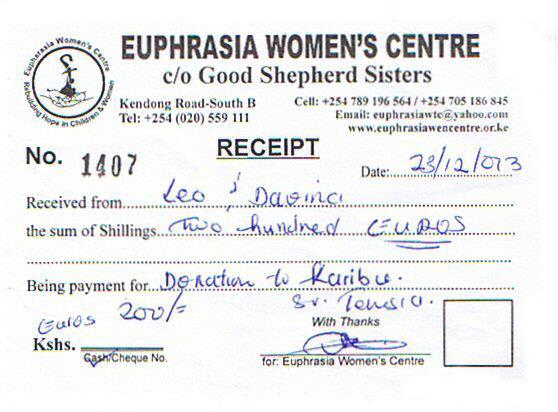 Euphrasia Women's Centre
Rebuilding Hope in Children & Women
EUPHRASIA WOMEN'S CENTRE
c/o Good Shepherd Sisters
Kendong Road-South B
Tel: +254 (020) 559 111
Cell: +254 789 196 564 / +254 705 186 845
Email: euphrasiawtc@yahoo.com
www.euphrasiawencentre.or.ke
RECEIPT
No. 1407
Date: 23/12/013
Received from Leo Davinci
the sum of Shillings Two hundred EUROS
Being payment for Donation to Karibu.
Sr.
Euros 200/=
With Thanks
Kshs.
Cash/Cheque No.
for: Euphrasia Women's Centre